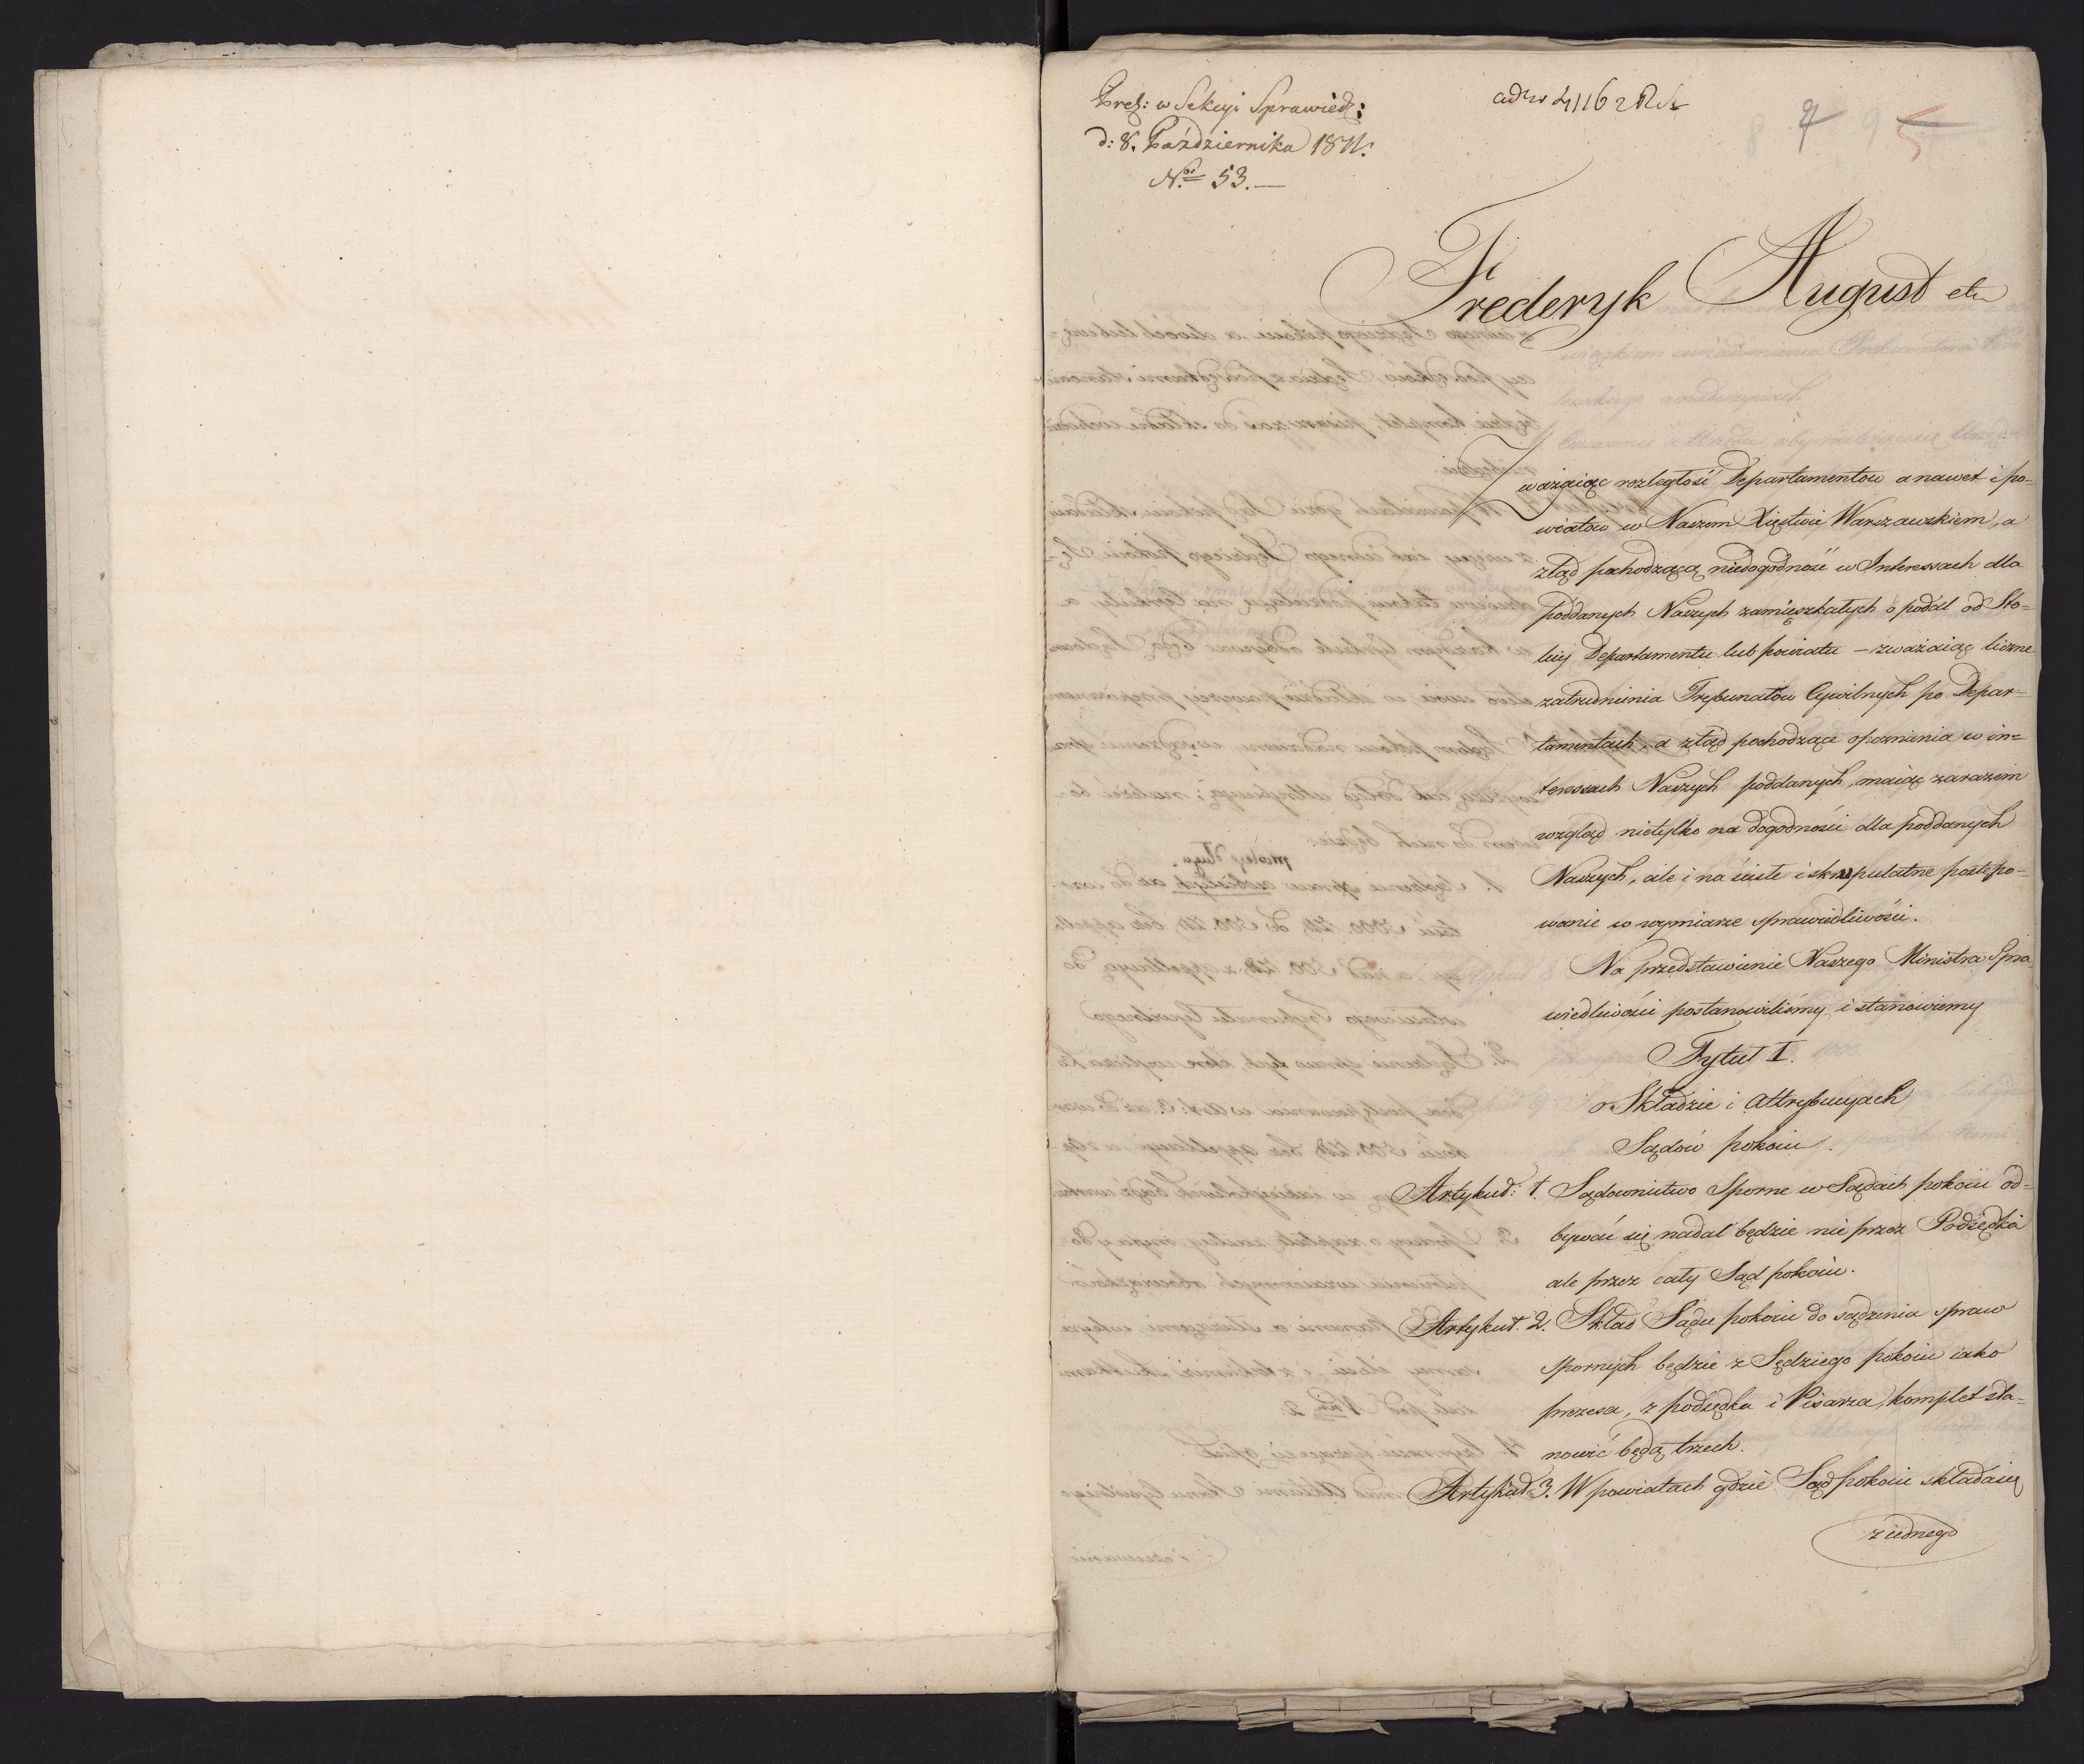 Prez: w Sekcyi Sprawied:
d: 8. Października 1811.
Nro 53.—
ad No 4116 2
8 7 9 5
Frederyk August etc
Zważaiąc rozległość Departamentow a nawet i po-
wiatow w Naszem Xięstwie Warszawskiem, a
ztąd pochodzącą niedogodność w Interessach dla
poddanych Naszych zamięszkałych opodal od Sto-
licy Departamentu lub powiatu – zważaiąc liczne
zatrudnienia Trybunałów Cywilnych po Depar=
tamentach, a ztąd pochodzące opoznienia w in=
teressach Naszych poddanych, maiąc zarazem
wzgląd nietylko na dogodności dla poddanych
Naszych, ale i na ścisłe i skrupulatne postępo-
wanie w wymiarze sprawiedliwości.
Na przedstawienie Naszego Ministra Spra-
wiedliwości postanowiliśmy i stanowiemy
Tytuł I.
o Składzie i Attrybucyach
Sądów pokoiu.
Artykuł: 1. Sądownictwo Sporne w Sądach pokoiu od=
bywać się nadal będzie nie przez Podsędka
ale przez cały Sąd pokoiu.
Artykuł. 2. Skład Sądu pokoiu do sądzenia spraw
spornych będzie z Sędziego pokoiu iako
prezesa, z podsędka i Pisarza, komplet sta=
nowić będą trzech.
Artykuł 3. W powiatach gdzie Sąd pokoiu składa się
z iednego